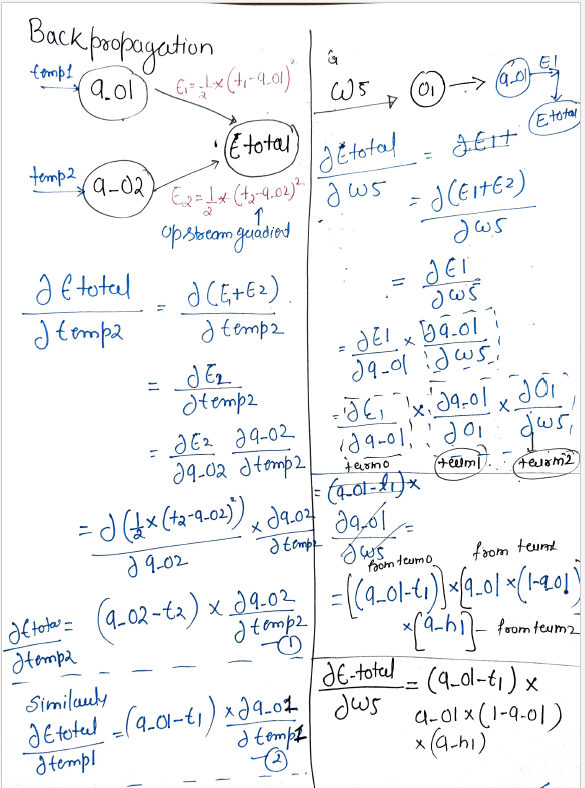 Backpropagation
temp1
a_01
E₁ = 1/2 × (t₁-a_01)²
E total
temp2
a_02
E₂ = 1/2 * (t₂-a_02)²
↑
∂Etotal/∂temp2 = ∂(E₁+E2)/∂temp2
= ∂E₂/∂temp2
= ∂E2/∂a_02 ∂a_02/∂temp2
= ∂(1/2 × (t₂-a_02)²)/∂a_02 × ∂a_02/∂temp2
∂Etotal/∂temp2 = (a_02-t₂) × ∂a_02/∂temp2
①
Similarly
∂Etotal/∂temp1 = (a_01-t₁) × ∂a_01/∂temp1
②
G
W5 → O₁ → a_01 → E1
E total
∂Etotal/∂w5 = ∂E1+
= ∂(E1+E2)/∂w5
= ∂E1/∂w5
= ∂E1/∂a_01 × ∂a_01/∂w5
= ∂E₁/∂a_01 × ∂a_01/∂O1 × ∂O1/∂w5
term0 term1 term2
= (a_01-t₁) ×
∂a_01/∂w5 =
from term0 from term1
= [(a_01-t₁)] × [a_01 × (1-a_01)]
× [a_h1] - from term2
∂E_total/∂w5 = (a_01-t₁) ×
a_01 × (1-a_01)
× (a_h1)